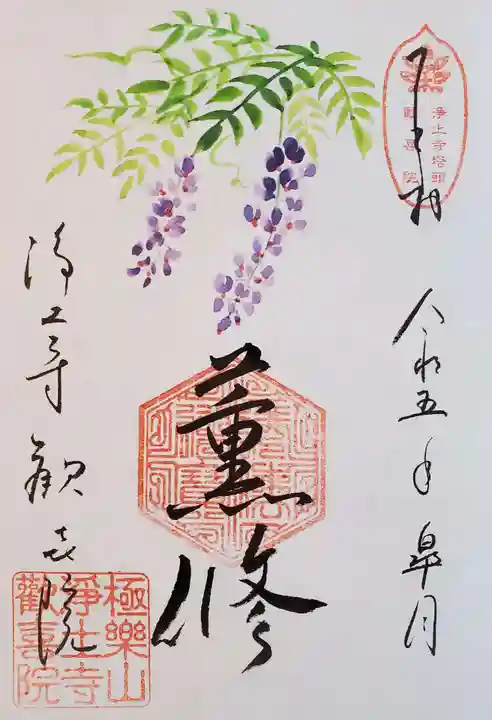 奉拝
浄土寺塔頭
歓喜院
令和五年 皐月
薫修
浄土寺 歓喜院
極樂山
淨土寺
歡喜院